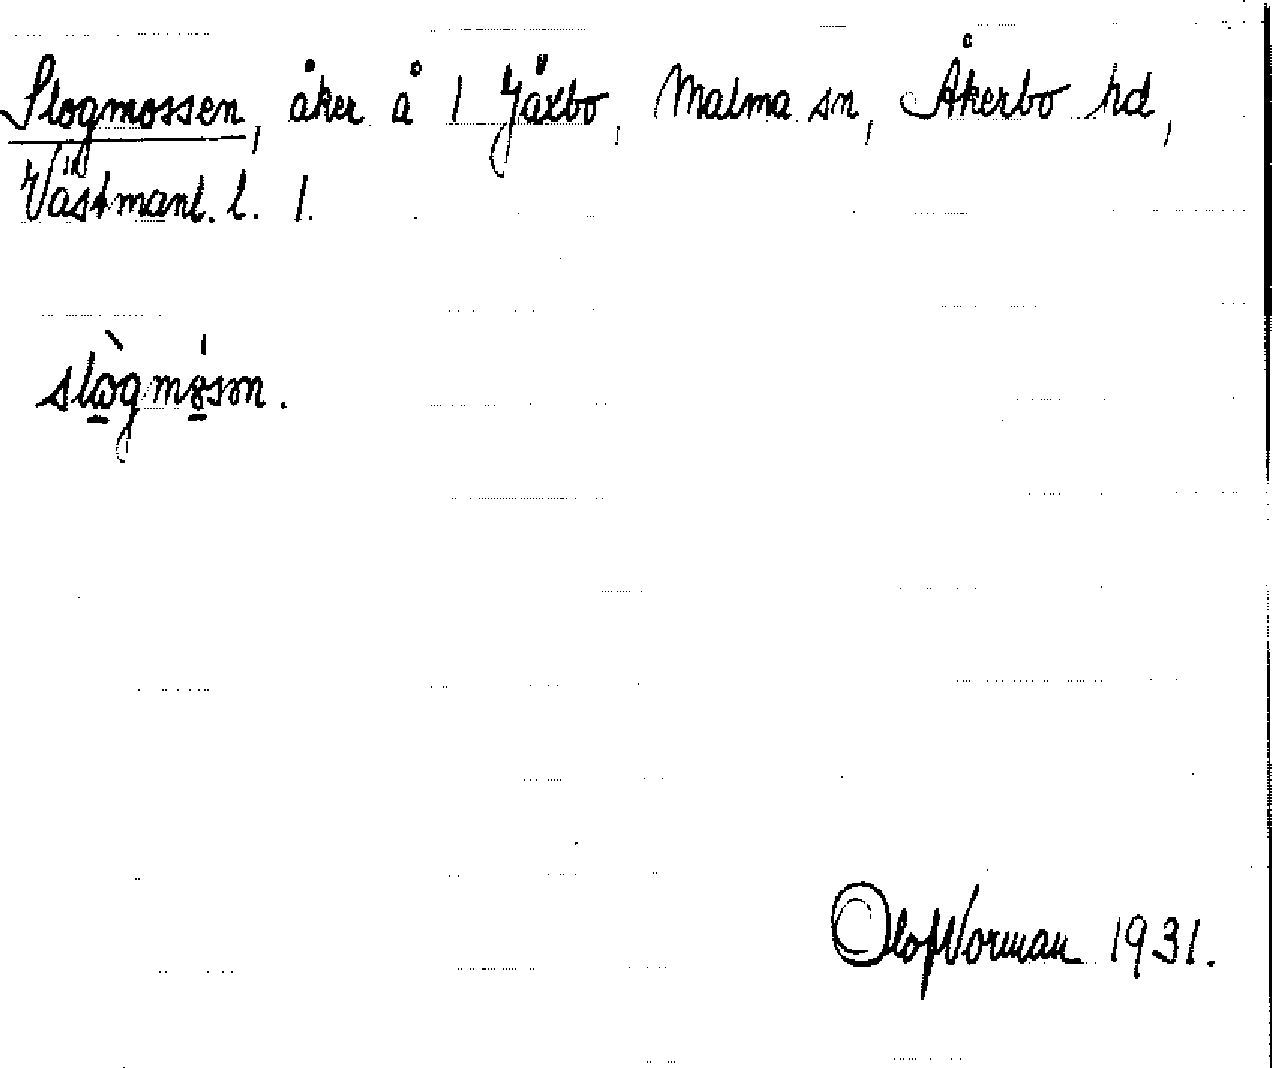 Slogmossen, åker å 1 Jäxbo, Malma sn, Åkerbo hd,
Västmanl. l. 1.
slògmøsən.
Olof Norman 1931.